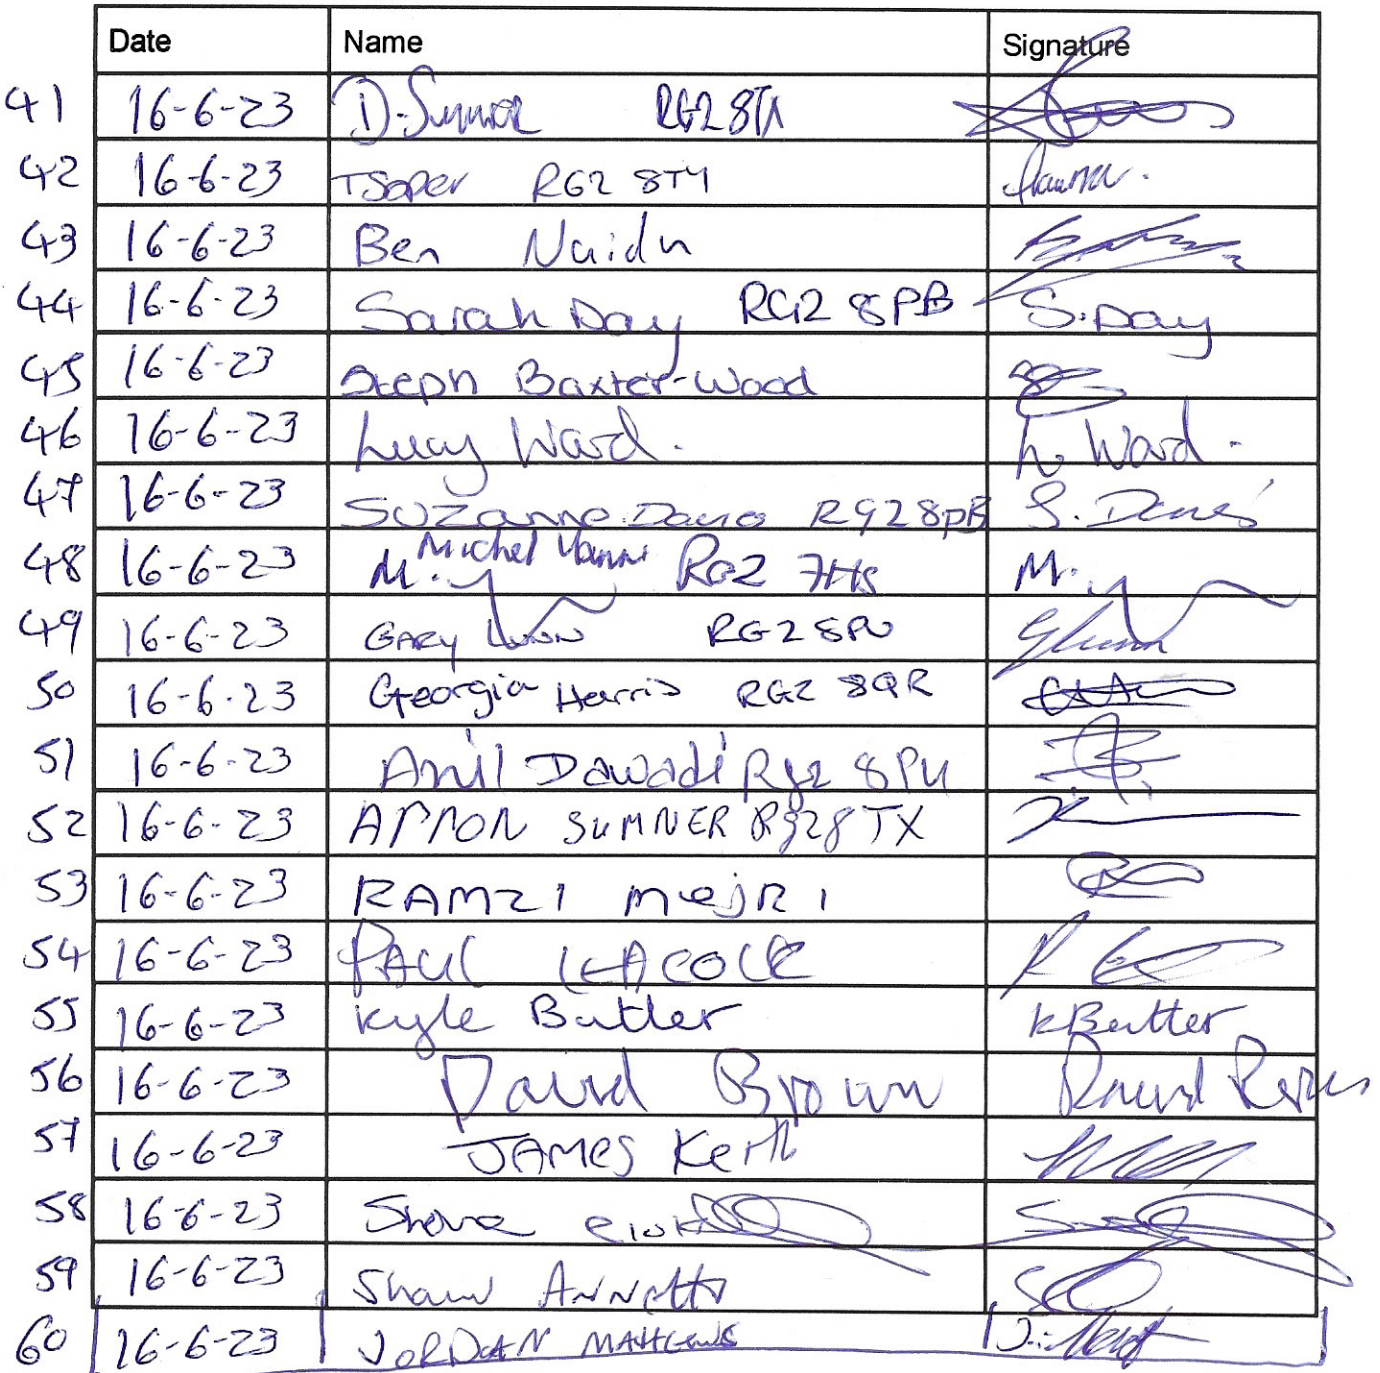 Date Name Signature
41 16-6-23 D. Sumner RG2 8TX
42 16-6-23 T Soper RG2 8TY
43 16-6-23 Ben Naidu
44 16-6-23 Sarah Day RG2 8PB S. Day
45 16-6-23 Steph Baxter-Wood
46 16-6-23 Lucy Ward. L. Ward.
47 16-6-23 Suzanne RG2 8PB S.
48 16-6-23 M. Michel RG2 7HS M.
49 16-6-23 GARY LUNN RG2 8PU GLunn
50 16-6-23 Georgia Harris RG2 8QR
51 16-6-23 Anil Dawadi Rg2 8PU
52 16-6-23 SUMNER Rg28TX
53 16-6-23 RAMZI MejRi
54 16-6-23 PAUL
55 16-6-23 Kyle Butler K Butler
56 16-6-23 David Brown David
57 16-6-23 JAMES
58 16-6-23
59 16-6-23 Shaun
60 16-6-23 JORDAN